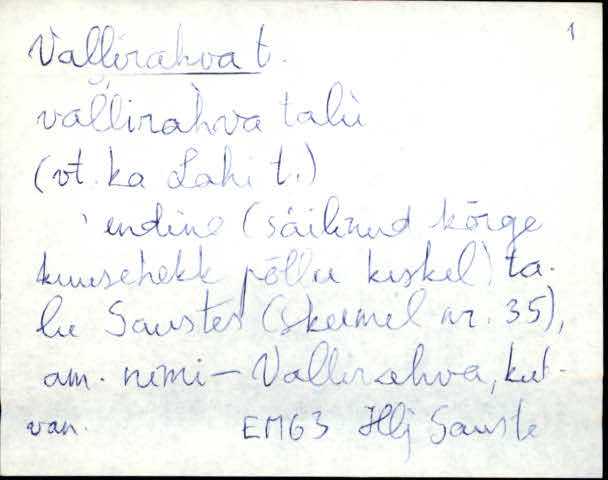 1
Vallirahva t.
vallirahva talu
(vt. ka Lahi t.)
endine (säilinud kõrge
kuusehekk põllu keskel) ta-
lu Saustes (skeemil nr. 35),
am. nimi – Vallirahva, kut-
van. EMG3 Hlj Sauste